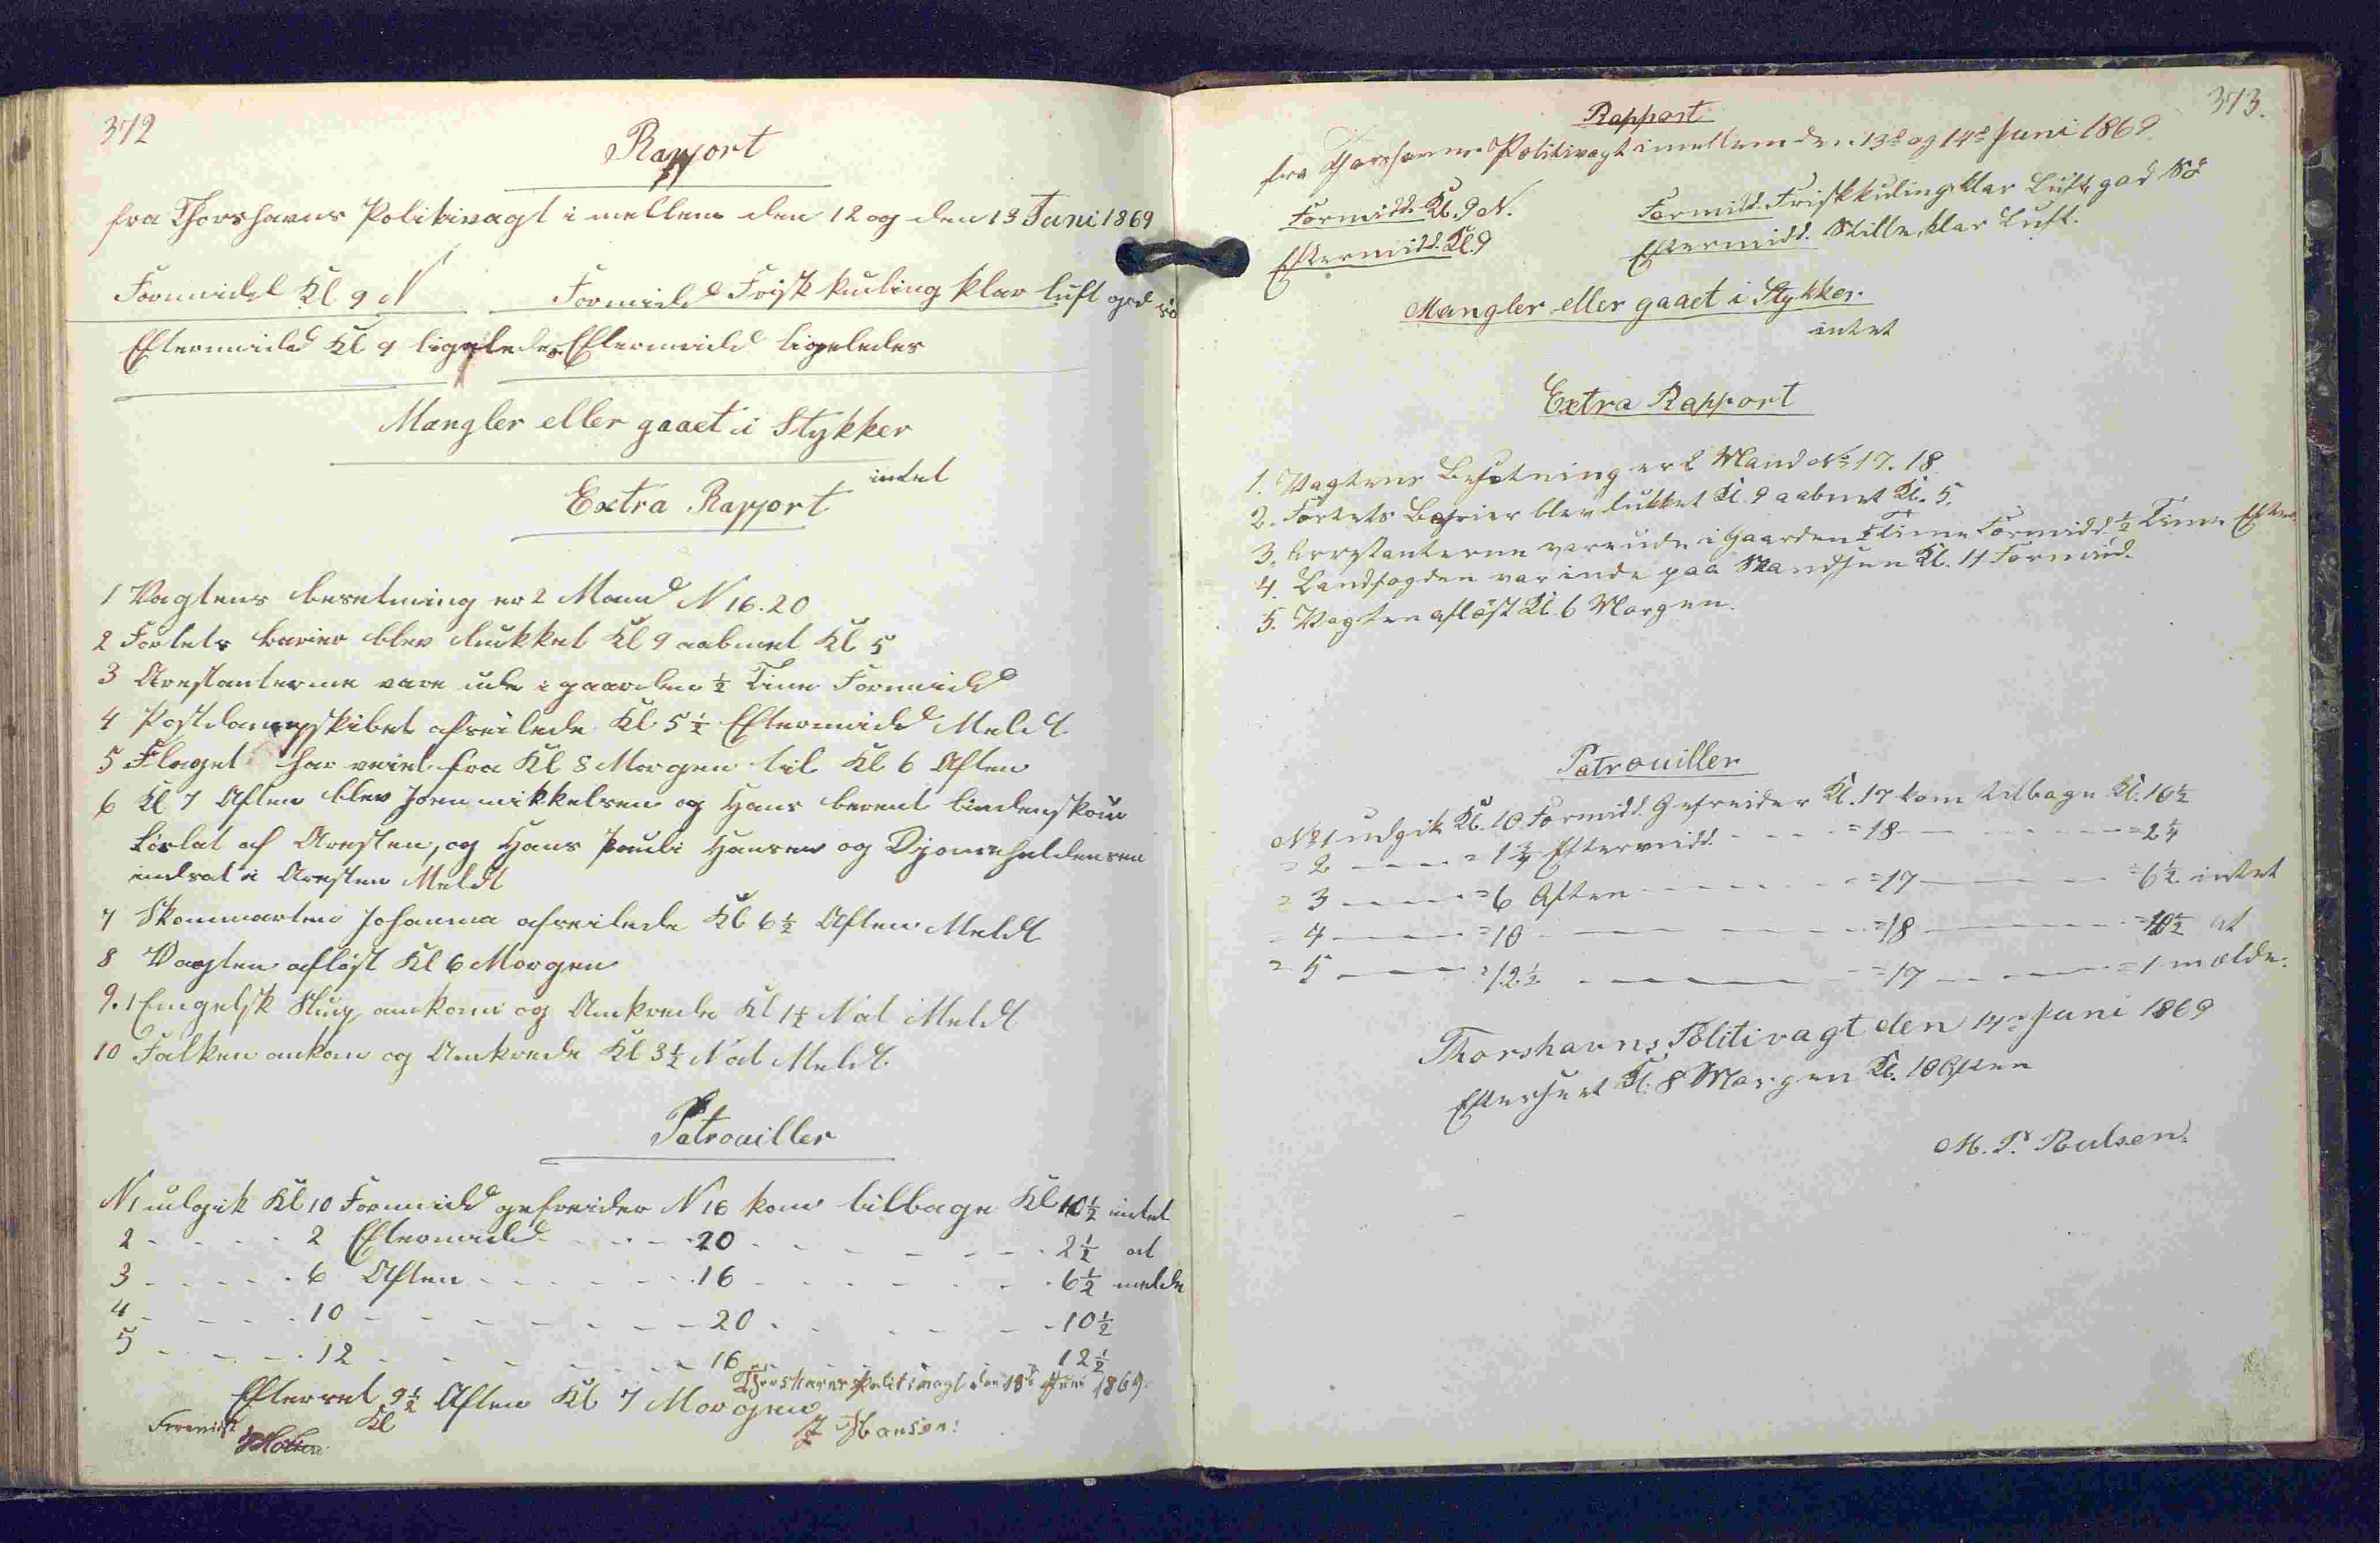 372
Rapport
fra Thorshavns Politivagt i mellem den 12 og den 13 Juni 1869
Formidd Kl 9 N Formidd Frisk kuling klar luft god sö
Eftermidd Kl 9 ligeledes Eftermidd ligeledes
Mangler eller gaaet i Stykker
intet
Extra Rapport
1 Vagtens besetning er 2 Mand N 16. 20
2 Fortets barier blev lukket Kl 9 aabnet Kl 5
3 Arestanterne vare ude i gaarden ½ Time Formidd
4 Postdampskibet afseilede Kl 5½ Eftermidd Meldt
5 Flaget har veiet fra Kl 8 Morgen til Kl 6 Aften
6 Kl 7 Aften blev Joen mikkelsen og Hans berent lindenskou
löslat af Aresten, og Hans Pauli Hansen og
indsat i Aresten Meldt
7 Skonnarten Johanna afseilede Kl 6½ Aften Meldt
8 Vagten aflöst Kl 6 Morgen
9. 1 Engelsk Slup ankom og Ankrede Kl 1½ Nat Meldt
10 Falken ankom og Ankrede Kl 3½ Nat Meldt
Patrouiller
N 1 udgik Kl 10 Formidd gefreider N 16 kom tilbage Kl 10½ intet
2 - - - - 2 Eftermidd - - - - 20 - - - - - - 2½ at
3 - - - - 6 Aften - - - - - - 16 - - - - - - 6½ melde
4 - - - - 10 - - - - - - - - 20 - - - - - - 10½
5 - - - - 12 - - - - - - - - 16 - - - - 12½
Thorshavns Politivagt den 13de Juni 1869.
Efterset 9½ Aften Kl 7 Morgen
Kl
Foreviist
J Hansen:
373.
Rapport
fra Thorshavns Politivagt imellem den 13de og 14de Juni 1869
Formidd. Kl. 9 N. Formidd. Frisk kuling klar Luft, god Sö
Eftermidd. Kl. 9 Eftermidd. Stille, klar Luft.
Mangler eller gaaet i Stykker.
intet
Extra Rapport
1. Vagtens Besetning er 2 Mand No 17. 18.
2. Fortets Barier blev lukket Kl. 9 aabnet Kl. 5.
3. Arrestanterne var ude i Gaarden ½ Time Formidd. ½ Time Efterm
4. Landfogden var inde paa Skandsen Kl. 11 Formid.
5. Vagten aflöst Kl. 6 Morgen.
Patrouiller
No 1 udgik Kl. 10 Formidd. Gefreider Kl. 17 kom tilbage Kl. 10½
= 2 - - - = 1¾ Eftermidd. - - - - = 18 - - - - - = 2¼
= 3 - - - = 6 Aften - - - - - = 17 - - - - = 6½ intet
= 4 - - - = 10 - - - - - - = 18 - - - - = 10½ at
= 5 - - - = 12½ - - - - - = 17 - - - - = 1 melde.
Thorshavns Politivagt den 14de Juni 1869
Efterset Kl. 8 Morgen Kl. 10 Aften
M. P. Poulsen.